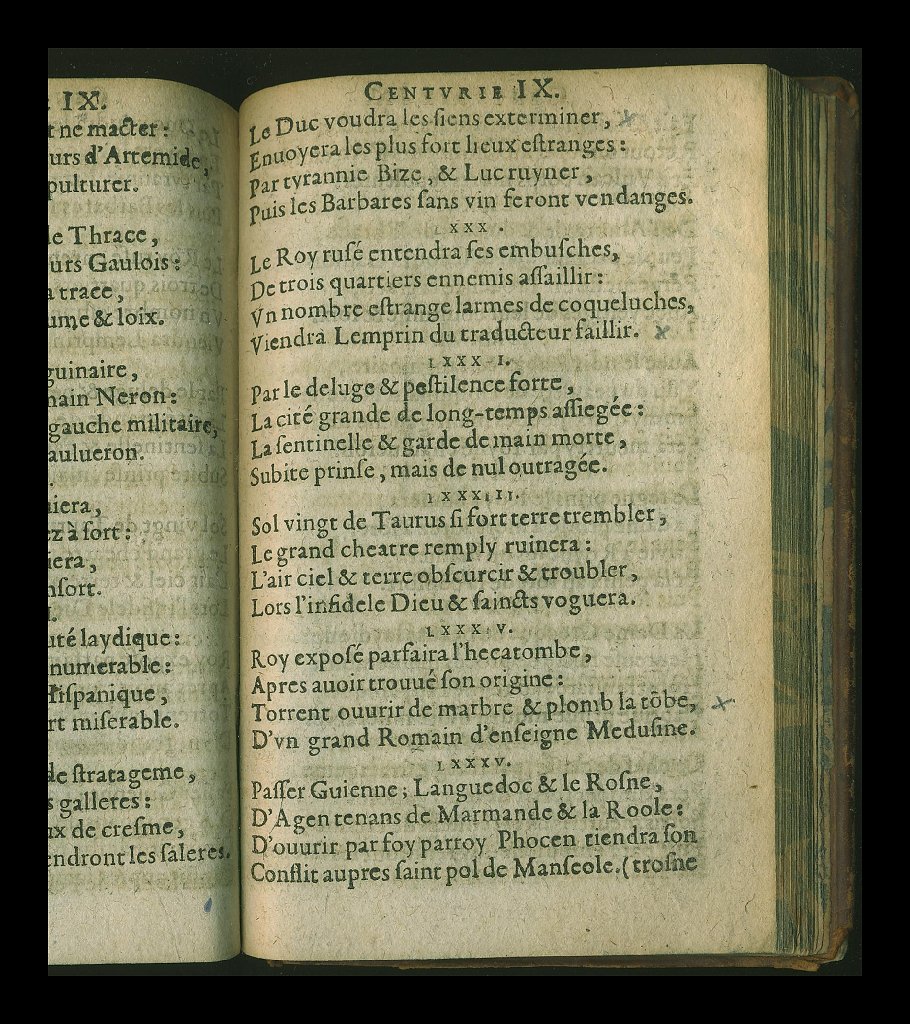 IX.
t ne macter:
urs d'Artemide,
pulturer.
le Thrace,
urs Gaulois:
a trace,
ume & loix.
guinaire,
main Neron:
gauche militaire,
aulueron.
niera,
ez à fort:
iera,
nfort.
uté laydique:
numerable:
Hiſpanique,
rt miſerable.
de ſtratageme,
s galleres:
ux de creſme,
endront les ſaleres.
CENTVRIE IX.
Le Duc voudra les ſiens exterminer,
Enuoyera les plus fort lieux eſtranges:
Par tyrannie Bize, & Luc ruyner,
Puis les Barbares ſans vin feront vendanges.
LXXX.
Le Roy ruſé entendra ſes embuſches,
De trois quartiers ennemis aſſaillir:
Vn nombre eſtrange larmes de coqueluches,
Viendra Lemprin du traducteur faillir.
LXXXI.
Par le deluge & peſtilence forte,
La cité grande de long-temps aſſiegée:
La ſentinelle & garde de main morte,
Subite prinſe, mais de nul outragée.
LXXXIII.
Sol vingt de Taurus ſi fort terre trembler,
Le grand theatre remply ruinera:
L'air ciel & terre obſcurcir & troubler,
Lors l'infidele Dieu & ſaincts voguera.
LXXXIV.
Roy expoſé parfaira l'hecatombe,
Apres auoir trouué ſon origine:
Torrent ouurir de marbre & plomb la tõbe,
D'vn grand Romain d'enſeigne Meduſine.
LXXXV.
Paſſer Guienne; Languedoc & le Roſne,
D'Agen tenans de Marmande & la Roole:
D'ouurir par foy parroy Phocen tiendra ſon
Conflit aupres ſaint pol de Manſeole. (troſne